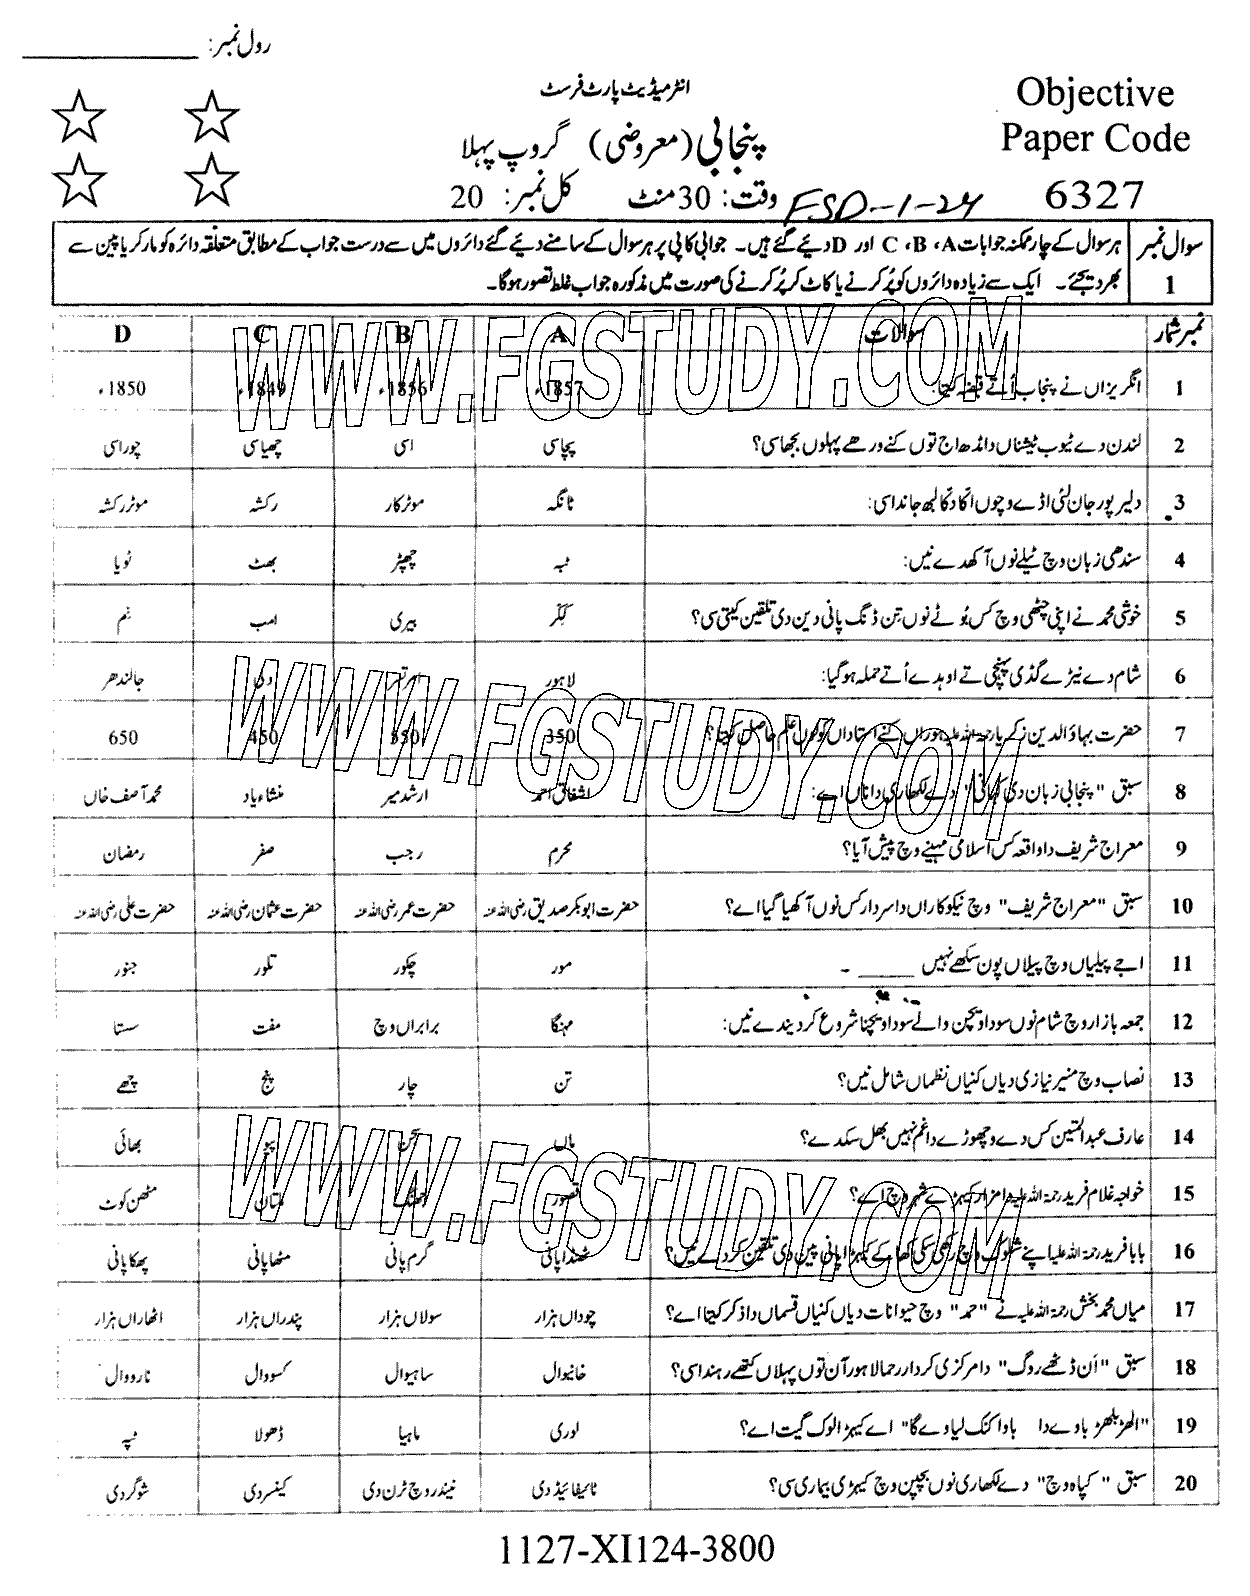 رول نمبر: ____________
انٹرمیڈیٹ پارٹ فرسٹ
Objective
Paper Code
6327
پنجابی (معروضی) گروپ پہلا
وقت: 30 منٹ کل نمبر: 20
FSD-1-24
سوال نمبر 1
ہر سوال کے چار ممکنہ جوابات A، B، C اور D دیئے گئے ہیں۔ جوابی کاپی پر ہر سوال کے سامنے دیئے گئے دائروں میں سے درست جواب کے مطابق متعلقہ دائرہ کو مارکر یا پین سے
بھر دیجئے۔ ایک سے زیادہ دائروں کو پُر کرنے یا کاٹ کر پُر کرنے کی صورت میں مذکورہ جواب غلط تصور ہوگا۔
نمبر شمار سوالات A B C D
1 انگریزاں نے پنجاب اُتے قبضہ کیتا: 1857ء 1856ء 1849ء 1850ء
2 لندن دے ٹیوب ٹیشناں دا ڈھ اج توں کنے ورھے پہلوں بجھا سی؟ پچاسی اسی چھیاسی چوراسی
3 دلیر پور جان لئی اڈے وچوں اکا دکا لبھ جاندا سی: ٹانگہ موٹر کار رکشہ موٹر رکشہ
4 سندھی زبان وچ ٹیلے نوں آکھدے نیں: ٹبہ چھپڑ بھٹ ٹویا
5 خوشی محمد نے اپنی چٹھی وچ کس بُوٹے نوں تِن ڈنگ پانی دین دی تلقین کیتی سی؟ کِکّر بیری امب نِم
6 شام دے نیڑے گڈی پہنچی تے اوہدے اُتے حملہ ہو گیا: لاہور امرتسر دلی جالندھر
7 حضرت بہاؤالدین زکریا رحمۃ اللہ علیہ ہوراں کنے استاداں کولوں علم حاصل کیتا؟ 350 550 450 650
8 سبق "پنجابی زبان دی کہانی" دے لکھاری دا ناں اے: اشفاق احمد ارشد میر منشاء یاد محمد آصف خاں
9 معراج شریف دا واقعہ کس اسلامی مہینے وچ پیش آیا؟ محرم رجب صفر رمضان
10 سبق "معراج شریف" وچ نیکوکاراں دا سردار کس نوں آکھیا گیا اے؟ حضرت ابوبکر صدیق رضی اللہ عنہ حضرت عمر رضی اللہ عنہ حضرت عثمان رضی اللہ عنہ حضرت علی رضی اللہ عنہ
11 اجے پیلیاں وچ پیلاں پون سکھے نہیں ______ ۔ مور چکور تلور جنور
12 جمعہ بازار وچ شام نوں سودا ویچن والے سودا ویچنا شروع کر دیندے نیں: مہنگا برابراں وچ مفت سستا
13 نصاب وچ منیر نیازی دیاں کنیاں نظماں شامل نیں؟ تن چار پنج چھے
14 عارف عبدالمتین کس دے وچھوڑے دا غم نہیں بھل سکدے؟ ماں بہن پیو بھائی
15 خواجہ غلام فرید رحمۃ اللہ علیہ دا مزار کیہڑے شہر وچ اے؟ قصور جھنگ ملتان مٹھن کوٹ
16 بابا فرید رحمۃ اللہ علیہ اپنے شلوک وچ رکھی سکھی کھا کے کیہڑا پانی پین دی تلقین کردے نیں؟ ٹھنڈا پانی گرم پانی مٹھا پانی پھکا پانی
17 میاں محمد بخش رحمۃ اللہ علیہ نے "حمد" وچ حیوانات دیاں کنیاں قسماں دا ذکر کیتا اے؟ چوداں ہزار سولاں ہزار پندراں ہزار اٹھاراں ہزار
18 سبق "اَن ڈٹھے روگ" دا مرکزی کردار رحما لاہور آن توں پہلاں کتھے رہندا سی؟ خانیوال ساہیوال کسووال نارووال
19 "الھڑ بلھڑ باوے دا باوا کنک لیاوے گا" اے کیہڑا لوک گیت اے؟ لوری ماہیا ڈھولا ٹپہ
20 سبق "کپاہ وچ" دے لکھاری نوں بچپن وچ کیہڑی بیماری سی؟ ٹائیفائیڈ دی نیندر وچ ٹرن دی کینسر دی شوگر دی
WWW.FGSTUDY.COM
WWW.FGSTUDY.COM
WWW.FGSTUDY.COM
1127-XI124-3800